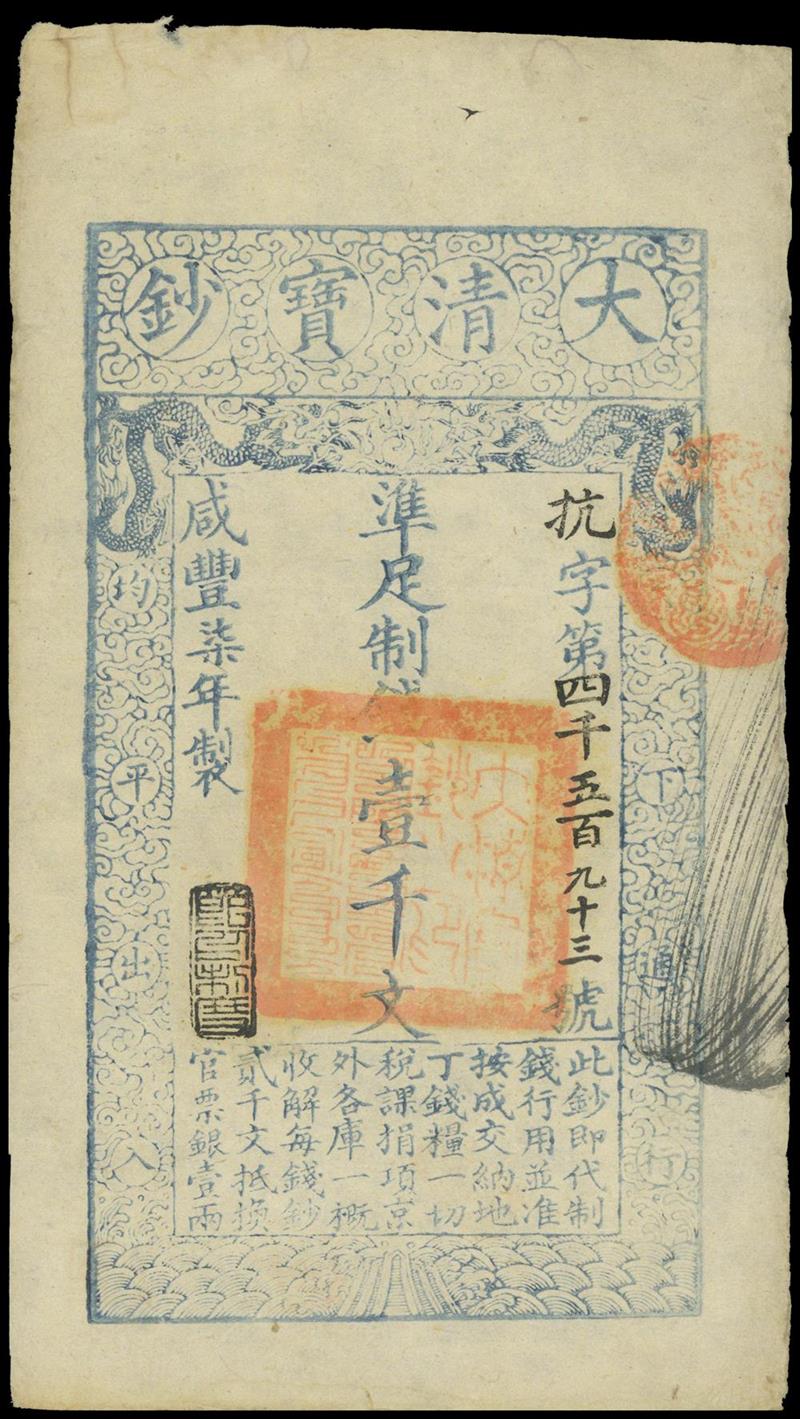 大清寶鈔
抗字第四千五百九十三號
準足制錢壹千文
咸豐柒年製
天下通行
均平出入
此鈔即代制
錢行用並准
按成交納地
丁錢糧一切
稅課捐項京
外各庫一概
收解每錢鈔
貳千文抵換
官票銀壹兩